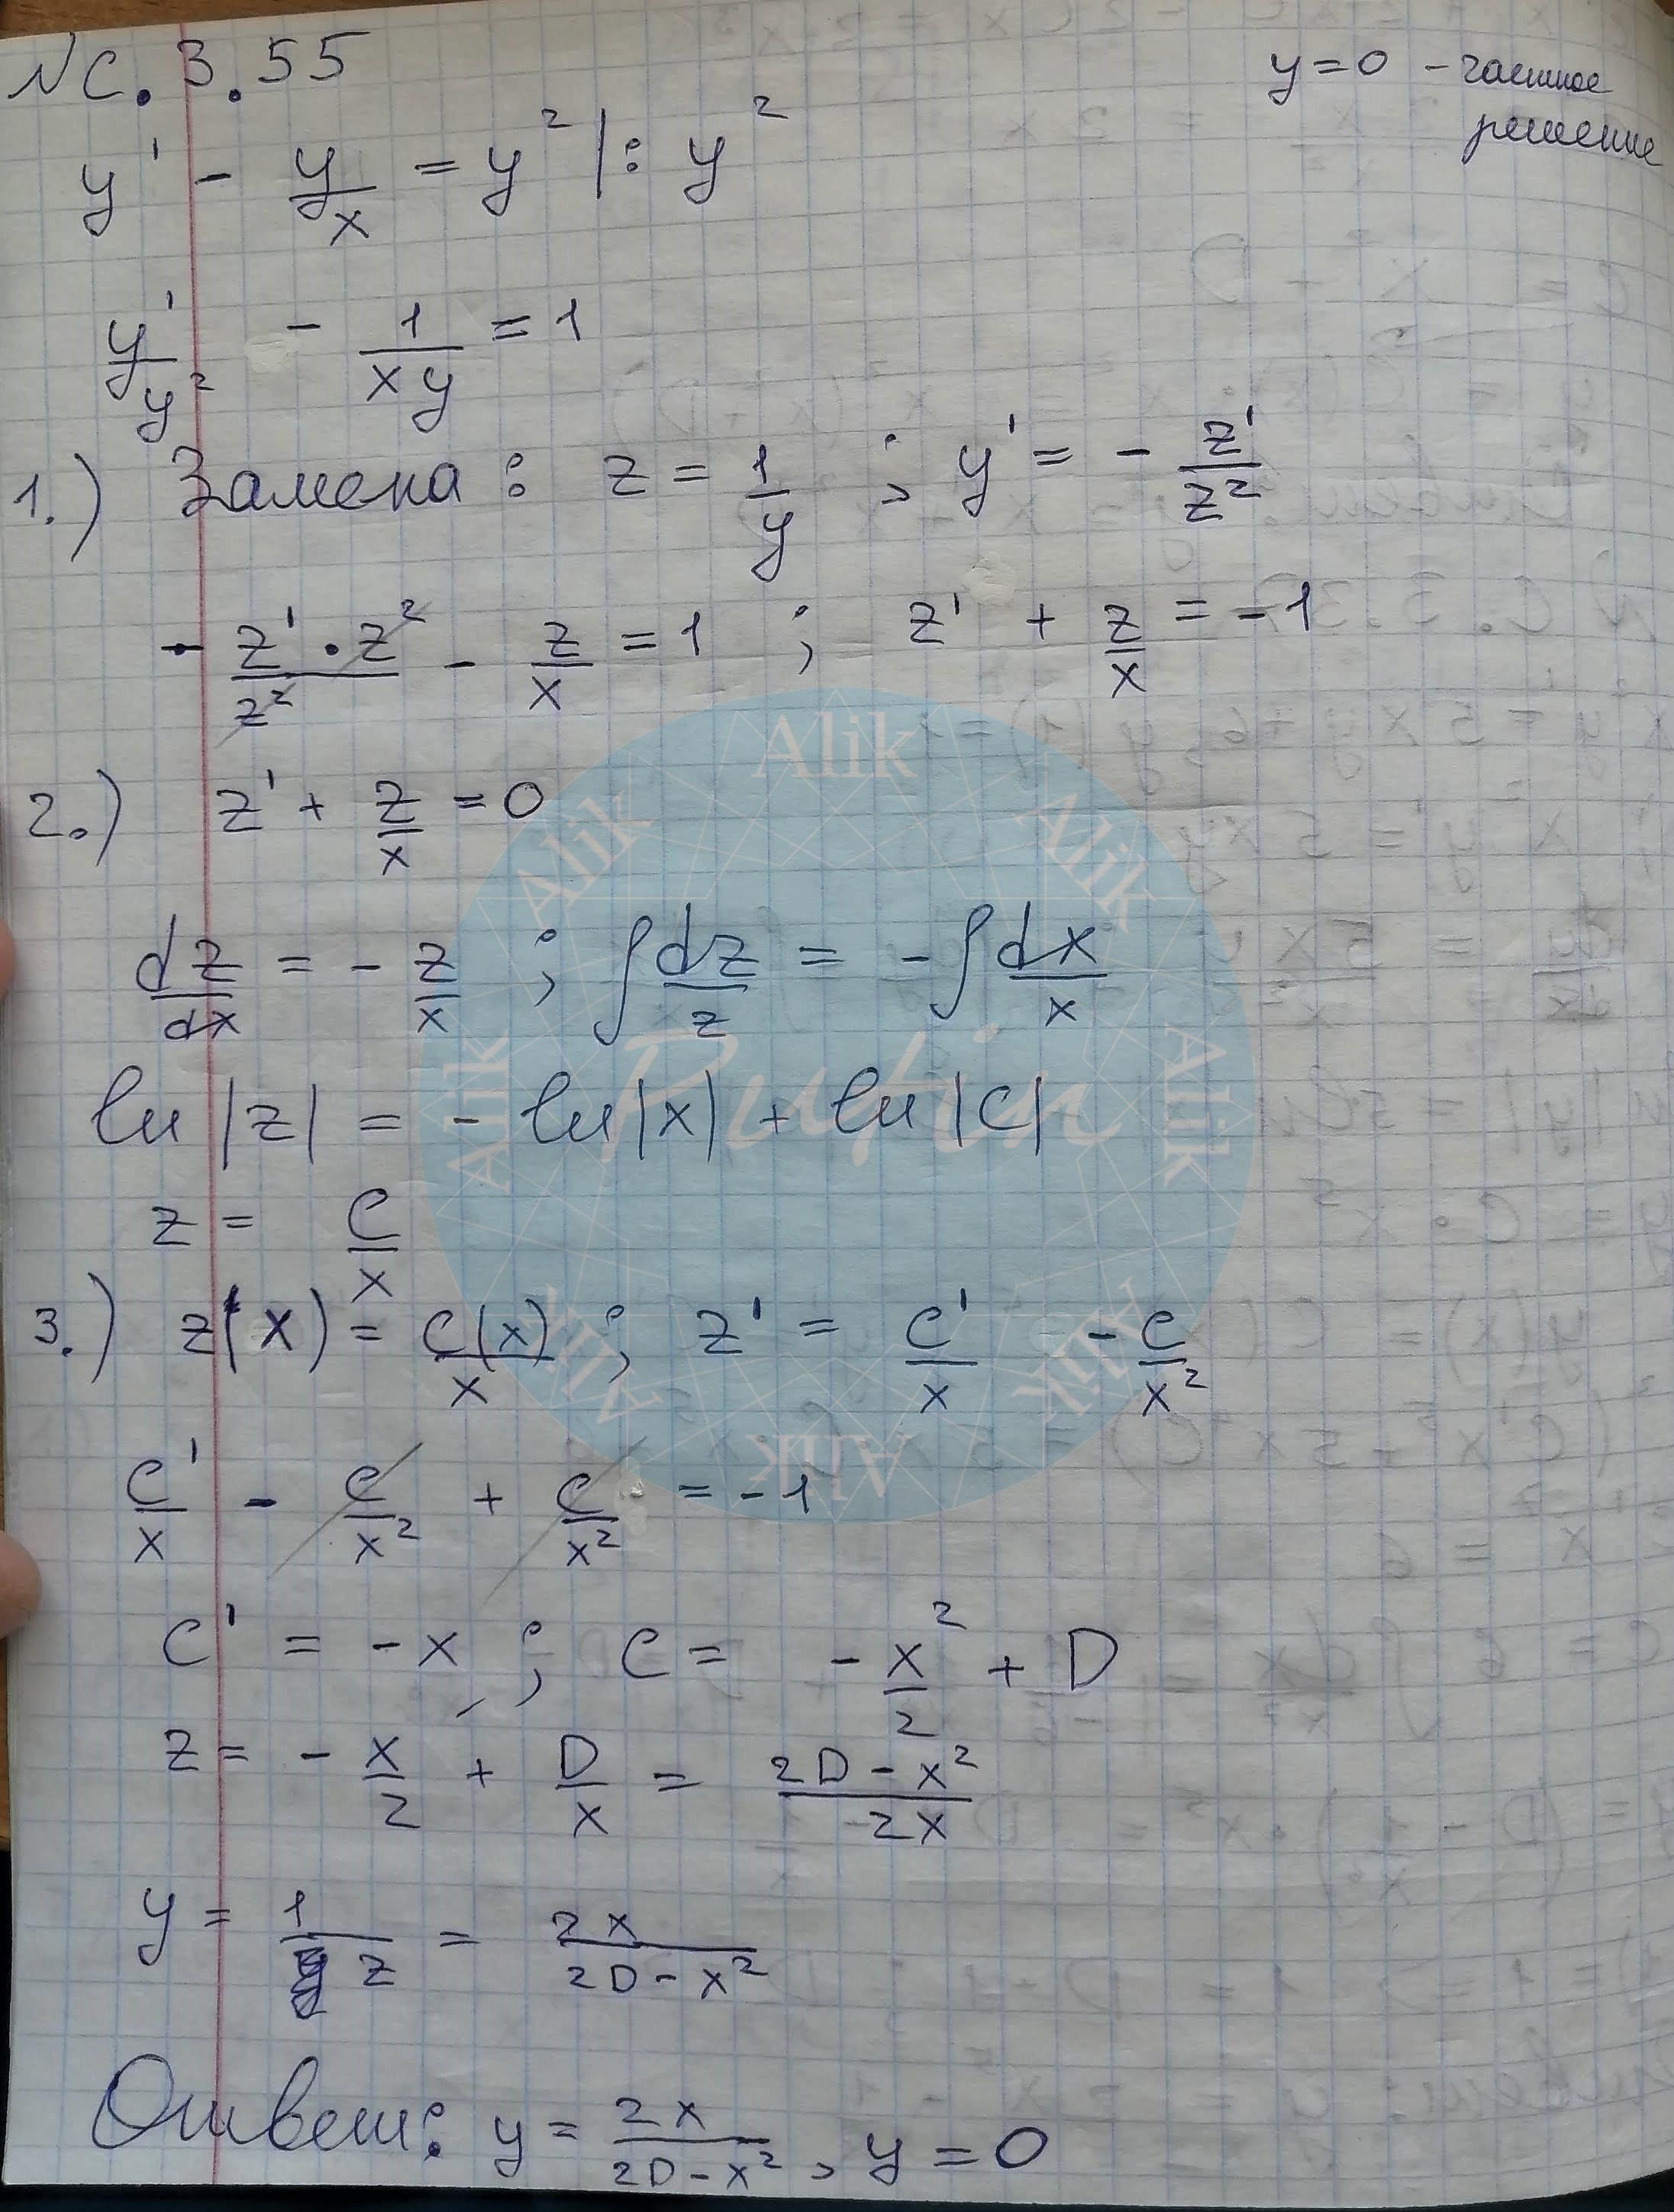 № С.3.55
y = 0 – частное
решение
y' - y/x = y² |: y²
y'/y² - 1/(xy) = 1
1.) Замена: z = 1/y ; y' = - z'/z²
- (z' · z²)/z² - z/x = 1 ; z' + z/x = -1
2.) z' + z/x = 0
dz/dx = - z/x ; ∫ dz/z = - ∫ dx/x
ln |z| = - ln |x| + ln |C|
z = C/x
3.) z(x) = C(x)/x ; z' = C'/x - C/x²
C'/x - C/x² + C/x² = -1
C' = -x ; C = - x²/2 + D
z = - x/2 + D/x = (2D - x²)/(2x)
y = 1/z = 2x/(2D - x²)
Ответ: y = 2x/(2D - x²), y = 0
Alik
Alik
Alik
Alik
Alik
Alik
Alik
Alik
Rutin